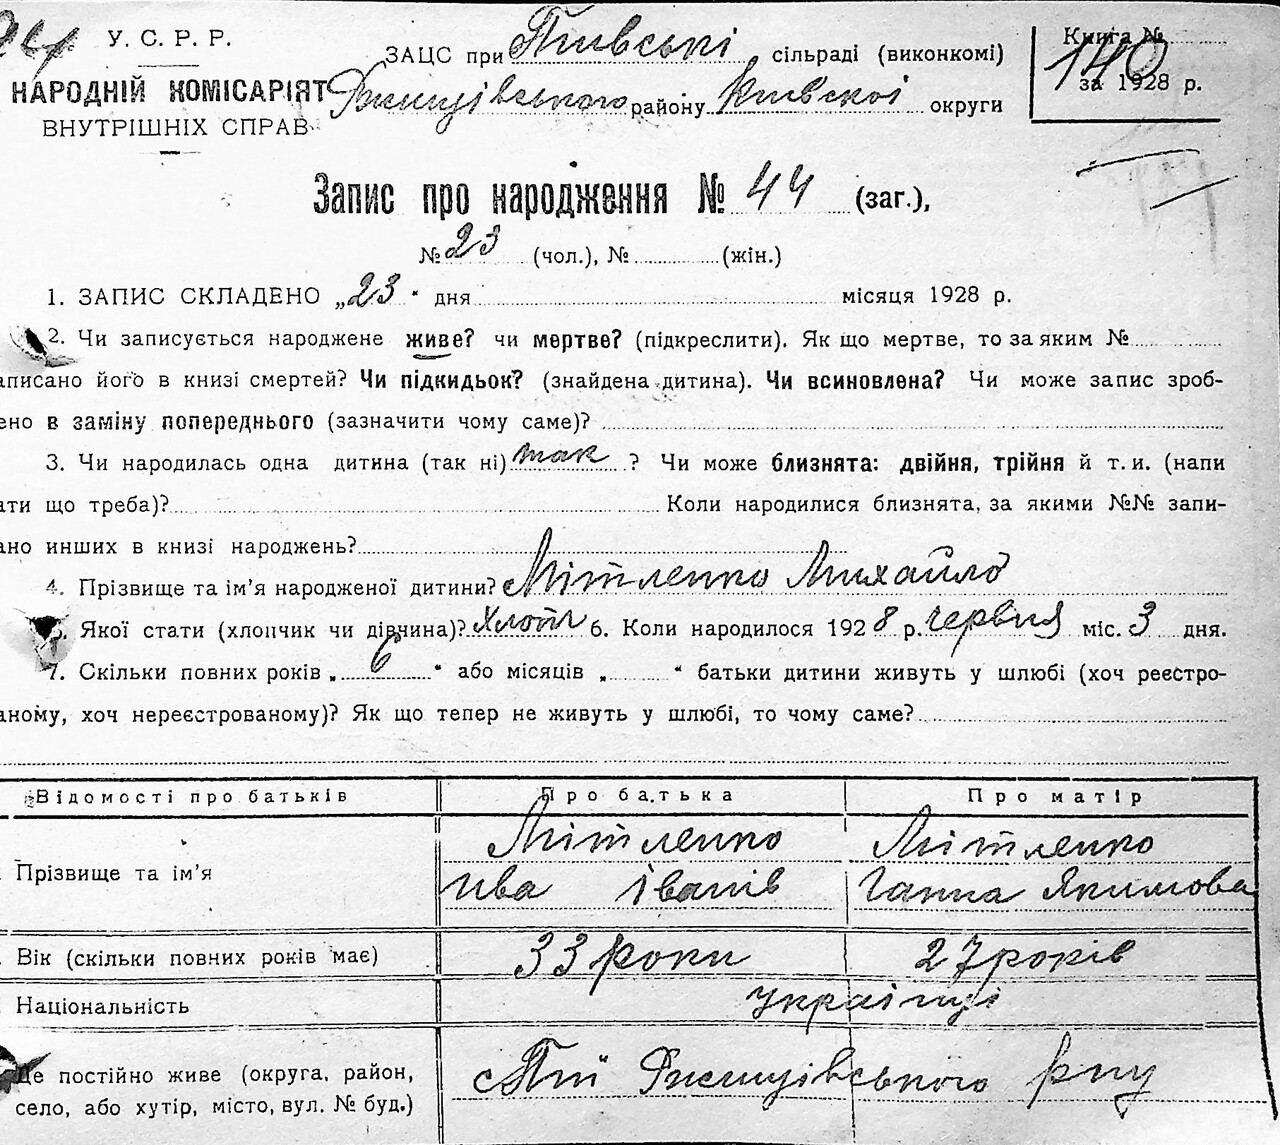 У. С. Р. Р.
НАРОДНІЙ КОМІСАРІЯТ
ВНУТРІШНІХ СПРАВ
ЗАЦС при сільраді (виконкомі)
району Київскої округи
Книга № 140
за 1928 р.
Запис про народження № 44 (заг.),
№ 23 (чол.), № (жін.)
1. ЗАПИС СКЛАДЕНО „23“ дня місяця 1928 р.
2. Чи записується народжене живе? чи мертве? (підкреслити). Як що мертве, то за яким №
аписано його в книзі смертей? Чи підкидьок? (знайдена дитина). Чи всиновлена? Чи може запис зроб-
ено в заміну попереднього (зазначити чому саме)?
3. Чи народилась одна дитина (так ні) так ? Чи може близнята: двійня, трійня й т. и. (напи
ати що треба)? Коли народилися близнята, за якими №№ запи-
ано инших в книзі народжень?
4. Прізвище та ім’я народженої дитини? Мітленко Михайло
Якої стати (хлопчик чи дівчина)? хлопч 6. Коли народилося 1928 р. червня міс. 3 дня.
7. Скільки повних років „ 6 “ або місяців „ “ батьки дитини живуть у шлюбі (хоч реєстро-
аному, хоч нереєстрованому)? Як що тепер не живуть у шлюбі, то чому саме?
Відомості про батьків Про батька Про матір
Прізвище та ім’я Мітленко Мітленко
Ива Іванів Ганна Якимова
Вік (скільки повних років має) 33 роки 27 років
Національність Українці
Де постійно живе (округа, район, с Пії Ржищівського рну
село, або хутір, місто, вул. № буд.)